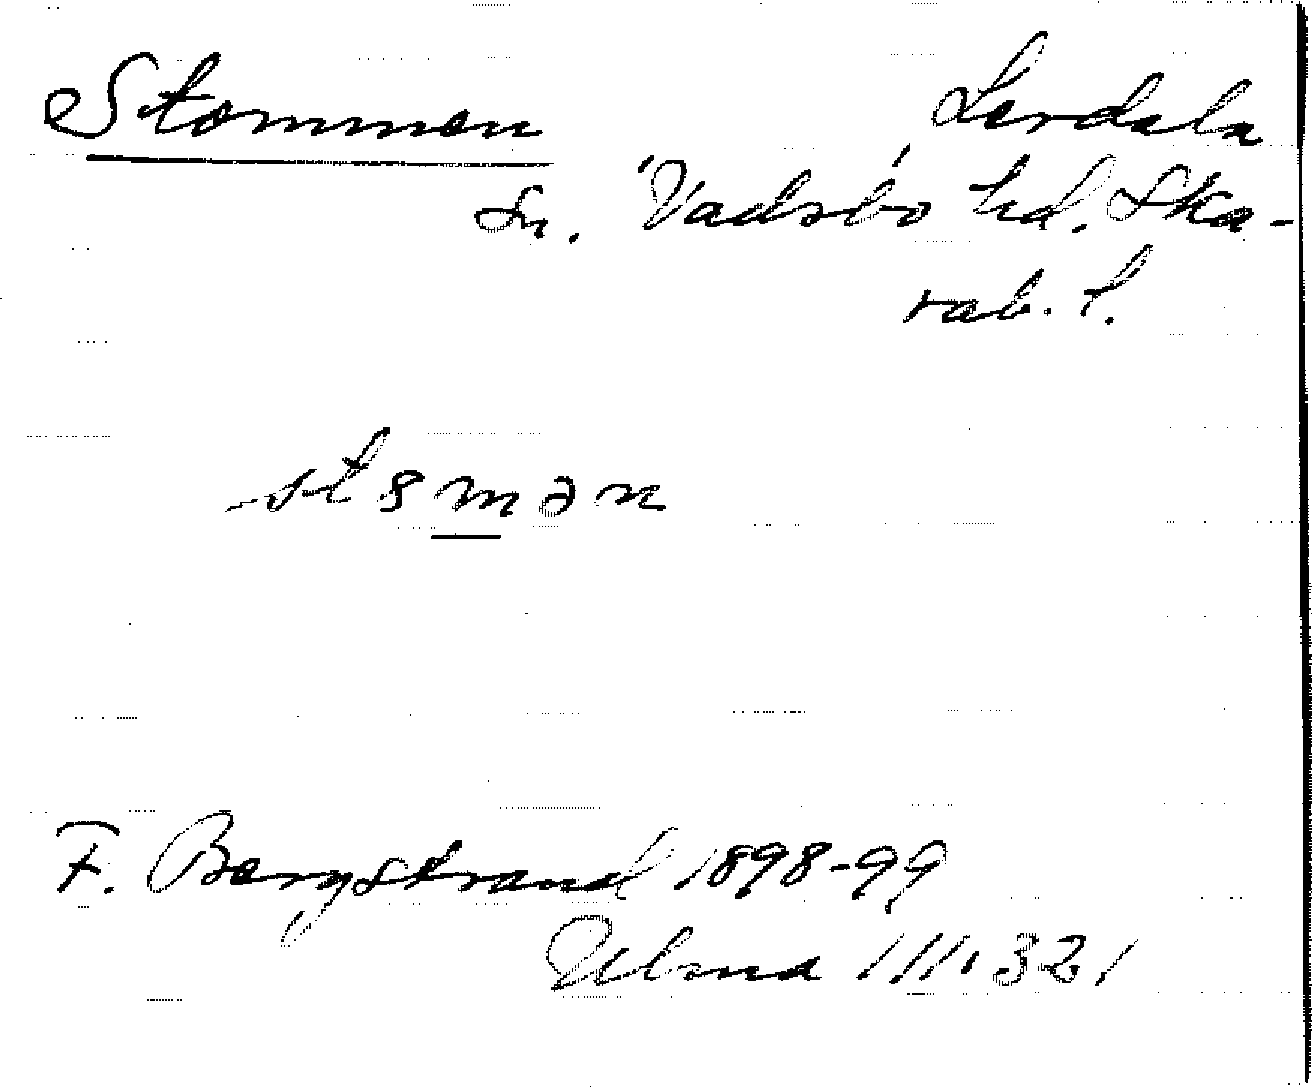 Stommen Lerdala
Sn. Vadsbo hd. Ska-
rab. l.
-st8mən
F. Bergstrand 1898-99
Ulma 111:321